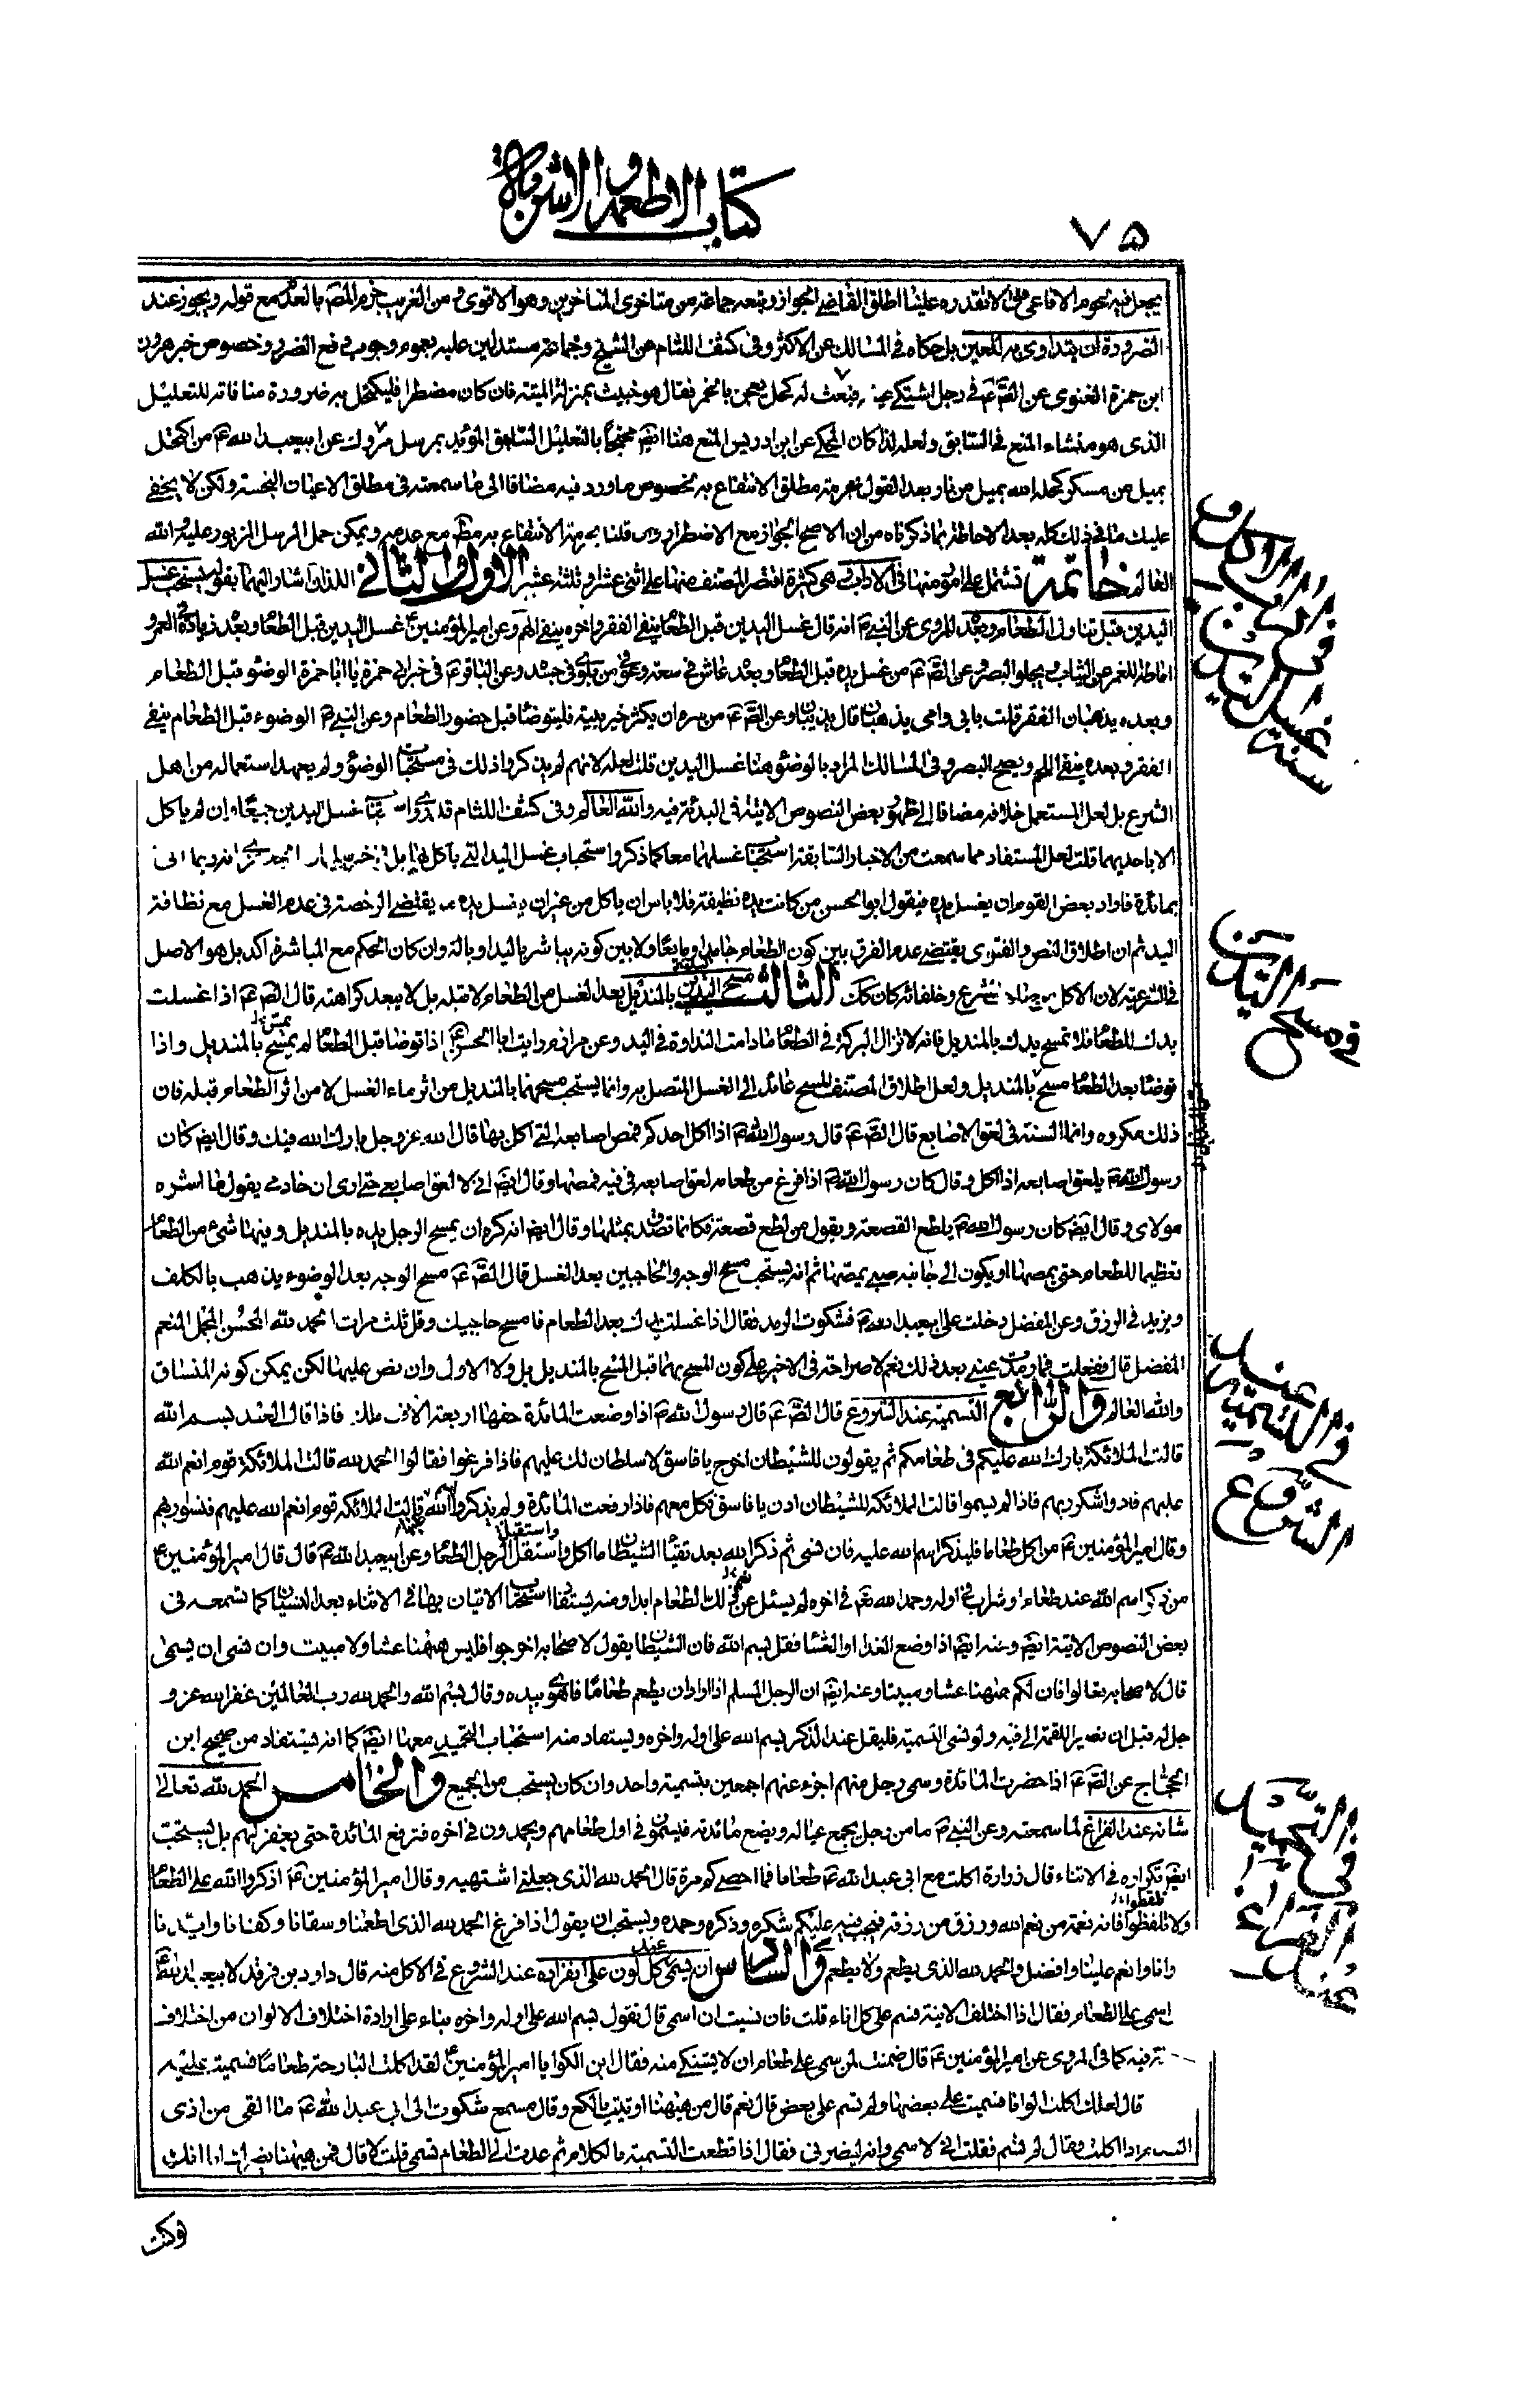 كتاب الاطعمة والاشربة
٧٥
يجعل فيه لحوم الافاعي الا نقدره علينا اطلق القاضي الجواز وتبعه جماعة من متاخري المتاخرين وهو الاقوى ومن الغريب جزم المصـ بالعدم مع قوله ويجوز عند
الضرورة ان يتداوى به للعين بل حكاه في المسالك عن الاكثر وفي كشف اللثام عن الشيخ وجماعة مستدلين عليه بعموم وجوب دفع الضرر وخصوص خبر هرون
ابن حمزة الغنوي عن الصـ ع في رجل اشتكى عينيه فنعت له كحل يعجن بالخمر فقال هو خبيث بمنزلة الميتة فان كان مضطرا فليكتحل به ضرورة منافاته للتعليل
الذي هو منشاء المنع في السابق ولعله لذا كان المحكي عن ابن ادريس المنع هنا ايضـ محتجا بالتعليل السابق المؤيد بمرسل مروك عن ابيعبد الله ع من اكتحل
بميل من مسكر كحله الله بميل من نار وبعد القول بحرمة مطلق الانتفاع به بخصوص ما ورد فيه مضافا الى ما سمعته في مطلق الاعيان النجسة ولكن لا يخفى
عليك ما في ذلك كله بعد الاحاطة بما ذكرناه من ان الاصح الجواز مع الاضطرار وان قلنا بحرمة الانتفاع به مطـ مع عدمه ويمكن حمل المرسل المزبور عليه والله
العالم خاتمة تشتمل على امور منها في الاداب وهي كثيرة اقتصر المصنف منها على اثني عشر او ثلثة عشر الاول والثاني اللذان اشار اليهما بقوله يستحب غسل
اليدين قبل تناول الطعام وبعده للمروي عن النبي ص انه قال غسل اليدين قبل الطعام ينفي الفقر واخره ينفي الهم وعن امير المؤمنين ع غسل اليدين قبل الطعام وبعده زيادة في العمر و
اماطة للغمر عن الثياب ويجلو البصر وعن الصـ ع من غسل يده قبل الطعام وبعده عاش في سعة وعوفي من بلوى في جسده وعن الباقر ع في خبر ابي حمزة يا ابا حمزة الوضوء قبل الطعام
وبعده يذهبان الفقر قلت بابي وامي يذهبان قال يذيبان وعن الصـ ع من سره ان يكثر خير بيته فليتوضا قبل حضور الطعام وعن النبي ص الوضوء قبل الطعام ينفي
الفقر وبعده ينفي اللمم ويصح البصر وفي المسالك المراد بالوضوء هنا غسل اليدين قلت لعله لانهم لم يذكروا ذلك في مستحبات الوضوء ولم يعهد استعماله من اهل
الشرع بل لعل المستعمل خلافه مضافا الى ظهور بعض النصوص الاتية في البدئة فيه والله العالم وفي كشف اللثام قد ذكروا استحباب غسل اليدين جميعا وان لم ياكل
الا باحديهما قلت لعل المستفاد مما سمعت من الاخبار السابقة استحباب غسلهما معا كما ذكروا استحباب غسل اليد التي ياكل بها بل في خبر سليمان الجعفري انه ربما اتى
بمائدة فاراد بعض القوم ان يغسل يده فيقول ابو الحسن من كانت يده نظيفة فلا باس ان ياكل من غير ان يغسل يده يقتضي الرخصة في عدم الغسل مع نظافة
اليد ثم ان اطلاق النص والفتوى يقتضي عدم الفرق بين كون الطعام جامدا ومايعا ولا بين كونه يباشر باليد او بالة وان كان الحكم مع المباشرة اكد بل هو الاصل
في الشرعية لان الاكل من صاحب الشرع وخلفائه كان كك الثالث مسح اليدين بالمنديل بعد الغسل من الطعام لا قبله بل لا يبعد كراهته قال الصـ ع اذا غسلت
يدك للطعام فلا تمسح يدك بالمنديل فانه لا تزال البركة في الطعام ما دامت النداوة في اليد وعن مرازم رايت ابا الحسن ع اذا توضا قبل الطعام لم يمسح بالمنديل واذا
توضا بعد الطعام مسح بالمنديل ولعل اطلاق المصنف المسح عائد الى الغسل المتصل به وانما يستحب مسحهما بالمنديل من اثر ماء الغسل لا من اثر الطعام قبله فان
ذلك مكروه وانما السنة في لعق الاصابع قال الصـ ع قال رسول الله ص اذا اكل احدكم فمص اصابعه التي اكل بها قال الله عزوجل بارك الله فيك وقال ايضـ كان
رسول الله ص يلعق اصابعه اذا اكل وقال كان رسول الله ص اذا فرغ من طعامه لعق اصابعه في فيه فمصها وقال ايضـ اني لا لعق اصابعي حتى ارى ان خادمي يقول ما اشره
مولاي وقال ايضـ كان رسول الله ص يلطع القصعة ويقول من لطع قصعة فكانما تصدق بمثلها وقال ايضـ انه كره ان يمسح الرجل يده بالمنديل وفيها شيء من الطعام
تعظيما للطعام حتى يمصها او يكون الى جانبه صبي يمصها ثم انه يستحب مسح الوجه والحاجبين بعد الغسل قال الصـ ع مسح الوجه بعد الوضوء يذهب بالكلف
ويزيد في الرزق وعن المفضل دخلت على ابيعبد الله ع فشكوت الرمد فقال اذا غسلت يدك بعد الطعام فامسح حاجبيك وقل ثلث مرات الحمد لله المحسن المجمل المنعم
المفضل قال ففعلت فما رمدت عيني بعد ذلك نعم لا صراحة في الاخير على كون المسح بهما قبل المسح بالمنديل بل ولا الاولى وان نص عليهما لكن يمكن كونه المنساق
والله العالم والرابع التسمية عند الشروع قال الصـ ع قال رسول الله ص اذا وضعت المائدة حفها اربعة الاف ملك فاذا قال العبد بسم الله
قالت الملائكة بارك الله عليكم في طعامكم ثم يقولون للشيطان اخرج يا فاسق لا سلطان لك عليهم فاذا فرغوا فقالوا الحمد لله قالت الملائكة قوم انعم الله
عليهم فادوا شكر ربهم فاذا لم يسموا قالت الملائكة للشيطان ادن يا فاسق فكل معهم فاذا رفعت المائدة ولم يذكروا الله قالت الملائكة قوم انعم الله عليهم فنسوا ربهم
وقال امير المؤمنين ع من اكل طعاما فليذكر اسم الله عليه فان نسى ثم ذكر الله بعد تقيا الشيطان ما اكل واستقل الرجل الطعام وعن ابيعبد الله ع قال قال امير المؤمنين ع
من ذكر اسم الله عند طعام او شراب في اوله وحمد الله تع في اخره لم يسئل عن نعيم ذلك الطعام ابدا ومنه يستفاد استحباب الاتيان بها في الاثناء بعد النسيان كما تسمعه في
بعض النصوص الاتية ايضـ وعنه ايضـ اذا وضع الغداء او العشاء فقل بسم الله فان الشيطان يقول لاصحابه اخرجوا فليس هيهنا عشاء ولا مبيت وان نسى ان يسمى
قال لاصحابه تعالوا فان لكم هيهنا عشاء ومبيتا وعنه ايضـ ان الرجل المسلم اذا اراد ان يطعم طعاما فاهوى بيده وقال بسم الله والحمد لله رب العالمين غفر الله عز و
جل له قبل ان تصير اللقمة الى فيه ولو نسى التسمية فليقل عند الذكر بسم الله على اوله واخره ويستفاد منه استحباب التحميد معها ايضـ كما انه يستفاد من صحيح ابن
الحجاج عن الصـ ع اذا حضرت المائدة وسمى رجل منهم اجزء عنهم اجمعين بتسمية واحد وان كان يستحب من الجميع والخامس الحمد لله تعالى
شانه عند الفراغ لما سمعته وعن النبي ص ما من رجل يجمع عياله ويضع مائدته فيسمون في اول طعامهم ويحمدون في اخره فترفع المائدة حتى يغفر لهم بل يستحب
ايضـ تكراره في الاثناء قال زرارة اكلت مع ابي عبد الله ع طعاما فما احصي كم مرة قال الحمد لله الذي جعلني اشتهيه وقال امير المؤمنين ع اذكروا الله على الطعام
ولا تلفظوا فانه نعمة من نعم الله ورزق من رزقه فيجب فيه عليكم شكره وذكره وحمده ويستحب ان يقول اذا فرغ الحمد لله الذي اطعمنا وسقانا وكفانا وايدنا
واوانا وانعم علينا وافضل والحمد لله الذي يطعم ولا يطعم والسادس ان يسمى على كل لون على انفراده عند الشروع في الاكل منه قال داود بن فرقد لابيعبد الله ع
اسمى على الطعام فقال اذا اختلف الانية فسم على كل اناء قلت فان نسيت ان اسمى قال تقول بسم الله على اوله واخره بناء على ارادة اختلاف الالوان من اختلاف
نية فيه كما في المروي عن امير المؤمنين ع قال ضمنت لمن سمى على طعام ان لا يشتكي منه فقال ابن الكوا يا امير المؤمنين ع لقد اكلت البارحة طعاما فسميت عليه
قال لعلك اكلت الوانا فسميت على بعضها ولم تسم على بعض قال نعم قال من هيهنا اوتيت يا لكع وقال مسمع شكوت الى ابي عبد الله ع ما القى من اذى
الطعام اذا اكلت فقال لم تسم فقلت اني لاسمي وانه ليضرني فقال اذا قطعت التسمية بالكلام ثم عدت الى الطعام تسمى قلت لا قال فمن هيهنا يضرك اما انك
في مسح اليدين
في التسمية عند الشروع
في التحميد عند الفراغ